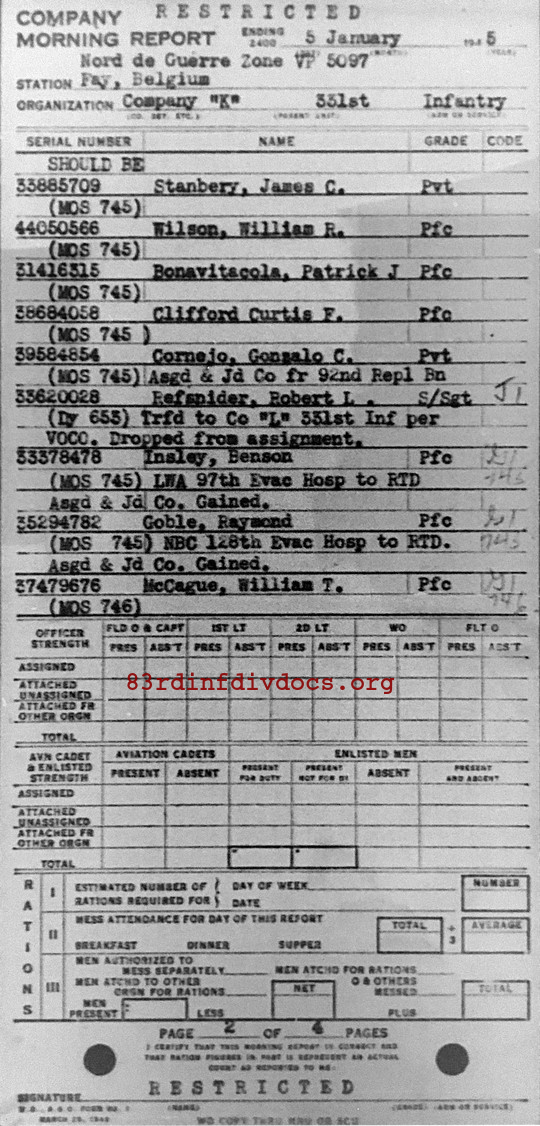 RESTRICTED
COMPANY
MORNING REPORT ENDING 2400 5 January 1945
Nord de Guerre Zone VP 5097
STATION Fay, Belgium
ORGANIZATION Company "K" 331st Infantry
SERIAL NUMBER NAME GRADE CODE
SHOULD BE
33885709 Stanbery, James C. Pvt
(MOS 745)
44050566 Wilson, William R. Pfc
(MOS 745)
31416315 Bonavitacola, Patrick J Pfc
(MOS 745)
38684058 Clifford Curtis F. Pfc
(MOS 745 )
39584854 Cornejo, Gonsalo C. Pvt
(MOS 745) Asgd & Jd Co fr 92nd Repl Bn
33620028 Refsnider, Robert L . S/Sgt J1
(Dy 653) Trfd to Co "L" 331st Inf per
VOCO. Dropped from assignment.
33378478 Insley, Benson Pfc
(MOS 745) LWA 97th Evac Hosp to RTD 745
Asgd & Jd Co. Gained.
35294782 Goble, Raymond Pfc
(MOS 745) NBC 128th Evac Hosp to RTD. 745
Asgd & Jd Co. Gained.
37479676 McCague, William T. Pfc
(MOS 746) 746
OFFICER STRENGTH FLD O & CAPT 1ST LT 2D LT WO FLT O
PRES ABS'T PRES ABS'T PRES ABS'T PRES ABS'T PRES ABS'T
ASSIGNED
ATTACHED UNASSIGNED
83rdinfdivdocs.org
ATTACHED FR OTHER ORGN
TOTAL
AVN CADET & ENLISTED STRENGTH AVIATION CADETS ENLISTED MEN
PRESENT ABSENT PRESENT FOR DUTY PRESENT NOT FOR D ABSENT PRESENT AND ABSENT
ASSIGNED
ATTACHED UNASSIGNED
ATTACHED FR OTHER ORGN
TOTAL
RATIONS
I ESTIMATED NUMBER OF RATIONS REQUIRED FOR DAY OF WEEK DATE NUMBER
II MESS ATTENDANCE FOR DAY OF THIS REPORT TOTAL ÷ 3 AVERAGE
BREAKFAST DINNER SUPPER
III MEN AUTHORIZED TO MESS SEPARATELY MEN ATCHD FOR RATIONS
MEN ATCHD TO OTHER ORGN FOR RATIONS NET O & OTHERS MESSED TOTAL
MEN PRESENT LESS PLUS
PAGE 2 OF 4 PAGES
I CERTIFY THAT THIS MORNING REPORT IS CORRECT AND
THAT RATION FIGURES IN PART III REPRESENT AN ACTUAL
COUNT AS REPORTED TO ME.
RESTRICTED
SIGNATURE
W.D., A.G.O. FORM NO. 1 (NAME) (GRADE) (ARM OR SERVICE)
MARCH 25, 1943